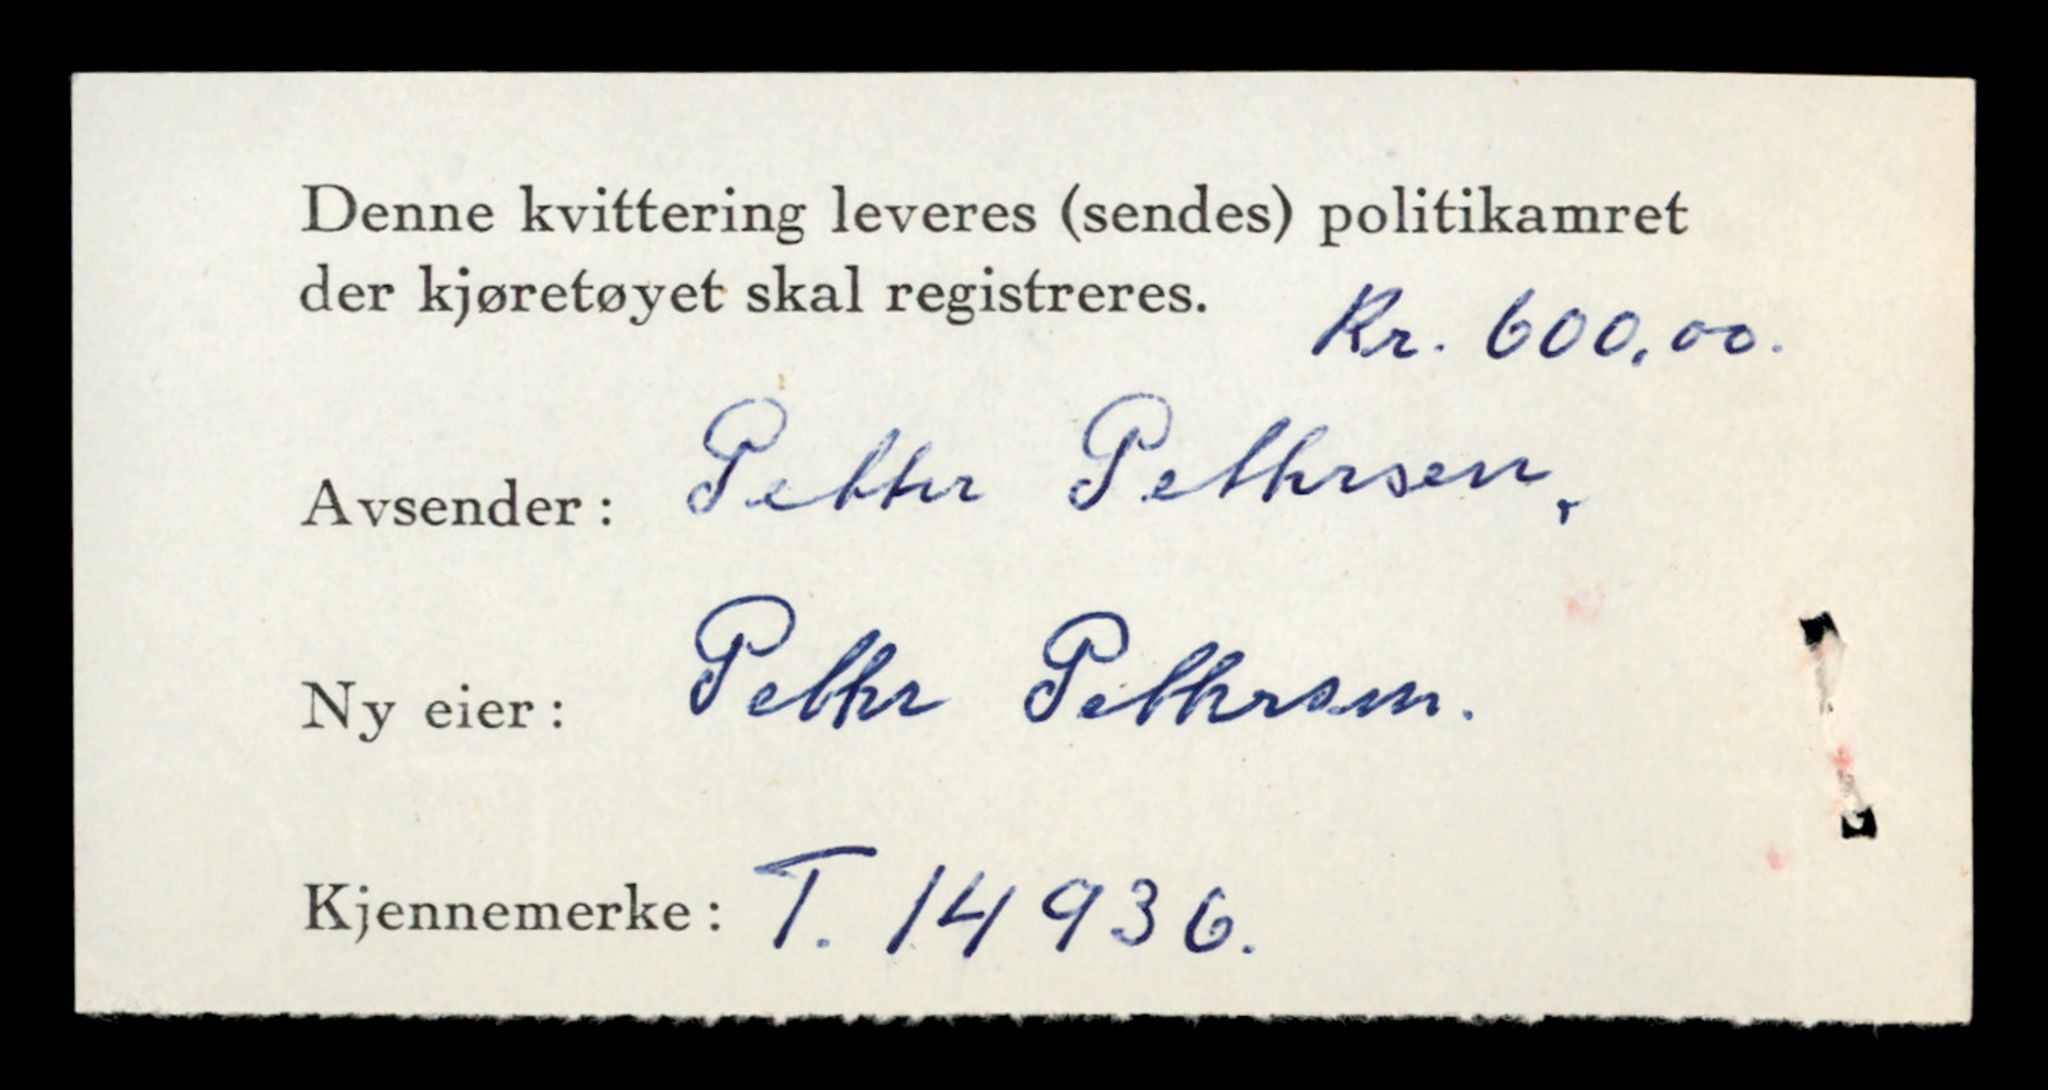 Denne kvittering leveres (sendes) politikamret
der kjøretøyet skal registreres.
Kr. 600,00.
Avsender: Petter Pettersen,
Ny eier: Petter Pettersen.
Kjennemerke: T. 14936.